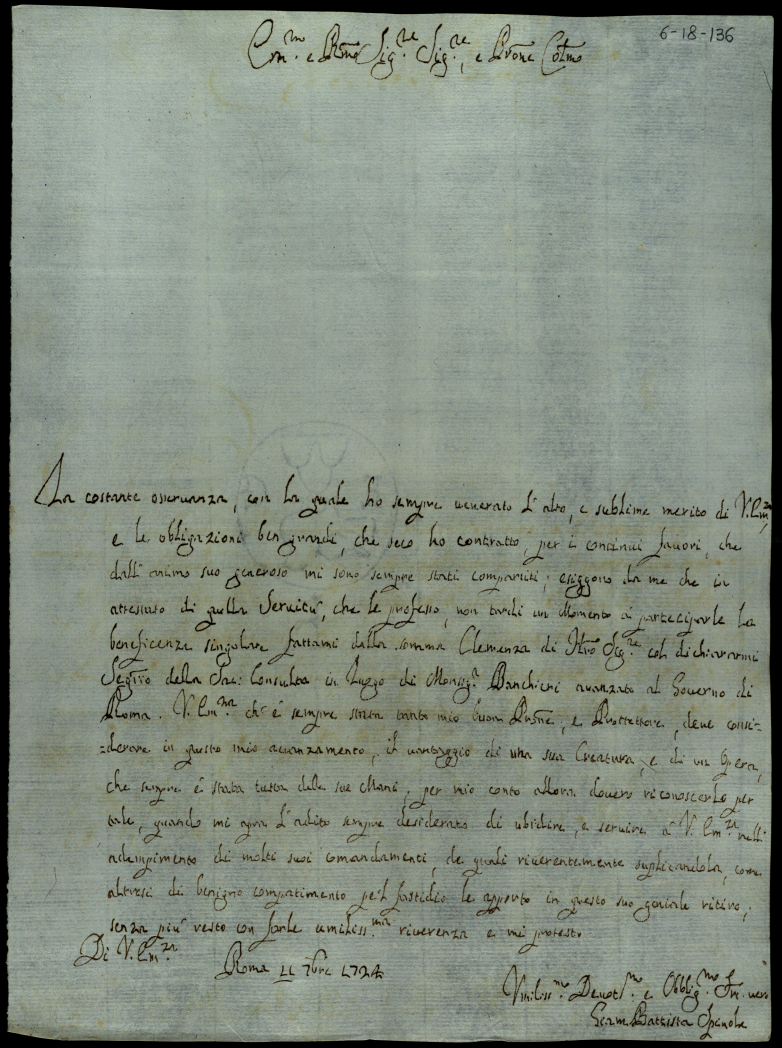 6-18-136
Em.mo e Rmo Sig.re Sig.re, e Prone Colmo
La costante osseruanza, con la quale ho sempre uenerato l'alto, e sublime merito di V. Em.za
e le obligazioni ben grandi, che seco ho contratto, per i continui fauori, che
dall'animo suo generoso mi sono sempre stati compartiti, esiggono da me che in
attestato di quella Seruitù, che le professo, non tardi un Momento à participarle la
beneficenza singolare fattami dalla somma Clemenza di Ntro Sig.re col dichiararmi
Segrio della Sac: Consulta in Luogo di Monsig.r Banchieri auanzato al Gouerno di
Roma. V. Em.za ch'è sempre stata tanto mio buon Prone, e Prottettore, deue consi=
=derare in questo mio auanzamento, il uantaggio di una sua Creatura, e di un Opera,
che sempre è stata tutta delle sue Mani, per mio conto allora douerò riconoscerlo per
tale, quando mi apra l'adito sempre desiderato di ubidire, e seruire à V. Em.za nell'
adempimento di molti suoi comandamenti, de quali riuerentemente suplicandola, come
altresì di benigno compatimento pe'l fastidio le apporto in questo suo geniale ritiro,
senza più resto con farle umiliss.ma riuerenza e mi protesto
Di V. Em.za
Roma 11 7bre 1724
Vmiliss.mo Deuot.mo e Obblig.mo Sr. uero
Giam Battista Spinola